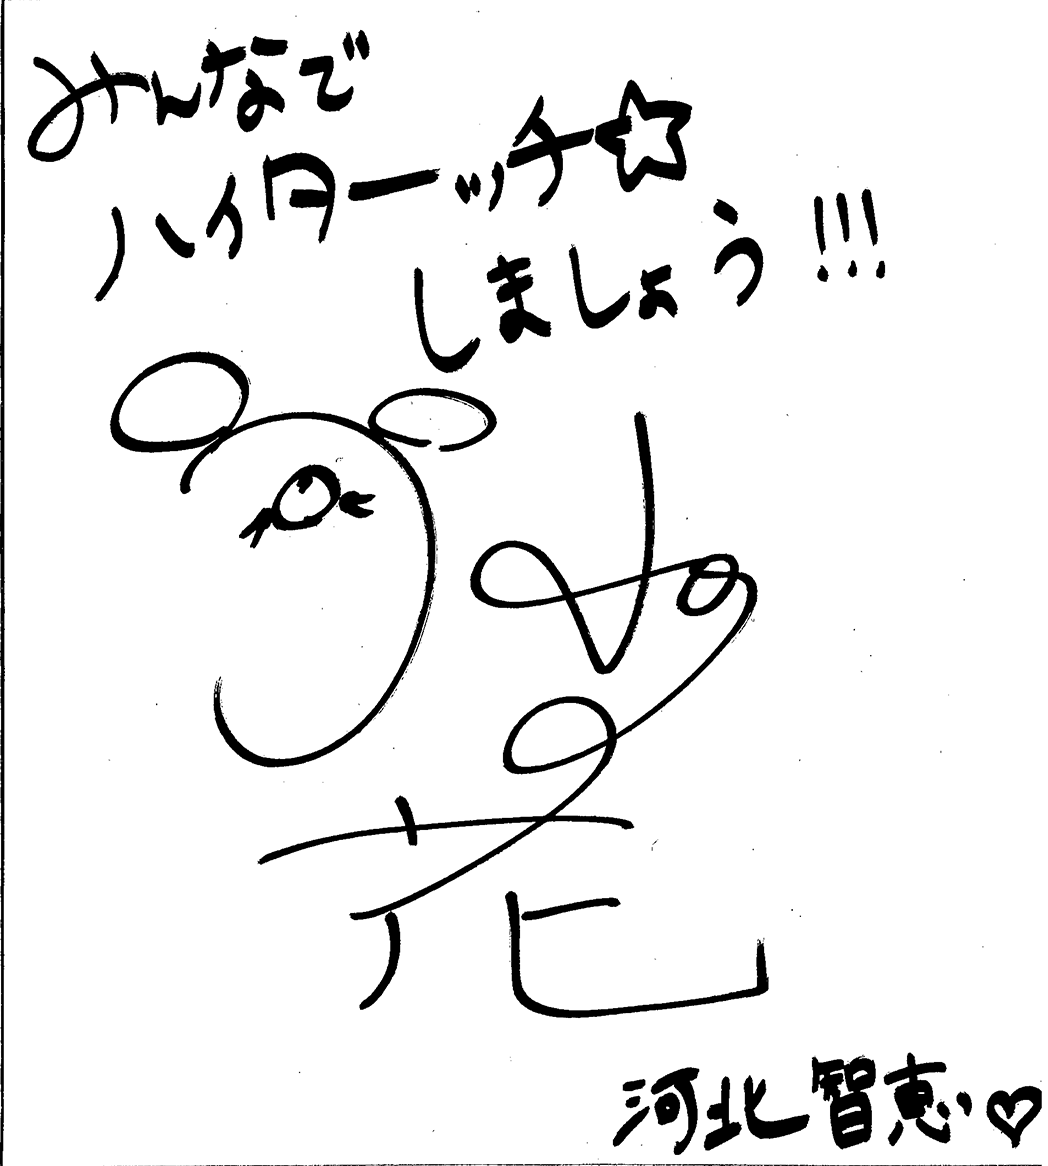 みんなで
ハイターッチ☆
しましょう!!!
河北智恵♡